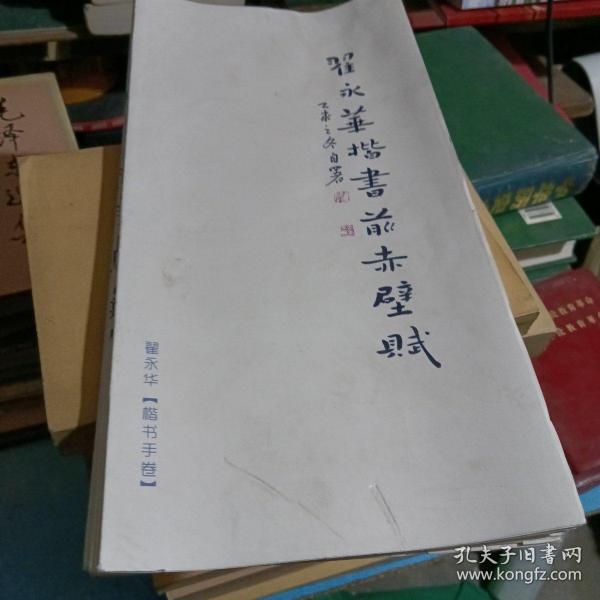 翟永華楷書前赤壁賦
乙未之冬自署
翟永华【楷书手卷】
毛泽东选集
孔夫子旧书网
www.kongfz.com